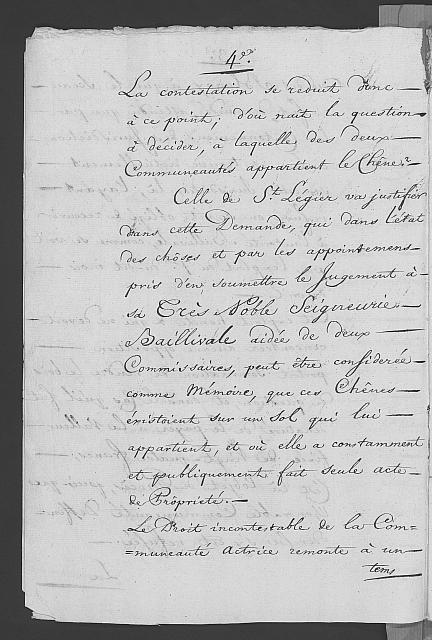 4.
La contestation se reduit donc —
à ce point; d'où nait la question
à décider, à laquelle des deux —
Communeautés appartient le Chêne?
Celle de St. Légier va justifier
dans cette Demande, qui dans l'état
des chôses et par les appointemens —
pris d'en soumettre le Jugement à —
sa Très Noble Seigneurie —
Baillivale aidée de deux —
Commissaires, peut être considerée
comme Mémoire, que ces Chênes —
éxistoient sur un sol qui lui —
appartient, et où elle a constamment
et publiquement fait seule acte —
de Propriété. —
Le Droit incontestable de la Com=
=muneauté actrice remonte à un —
tems